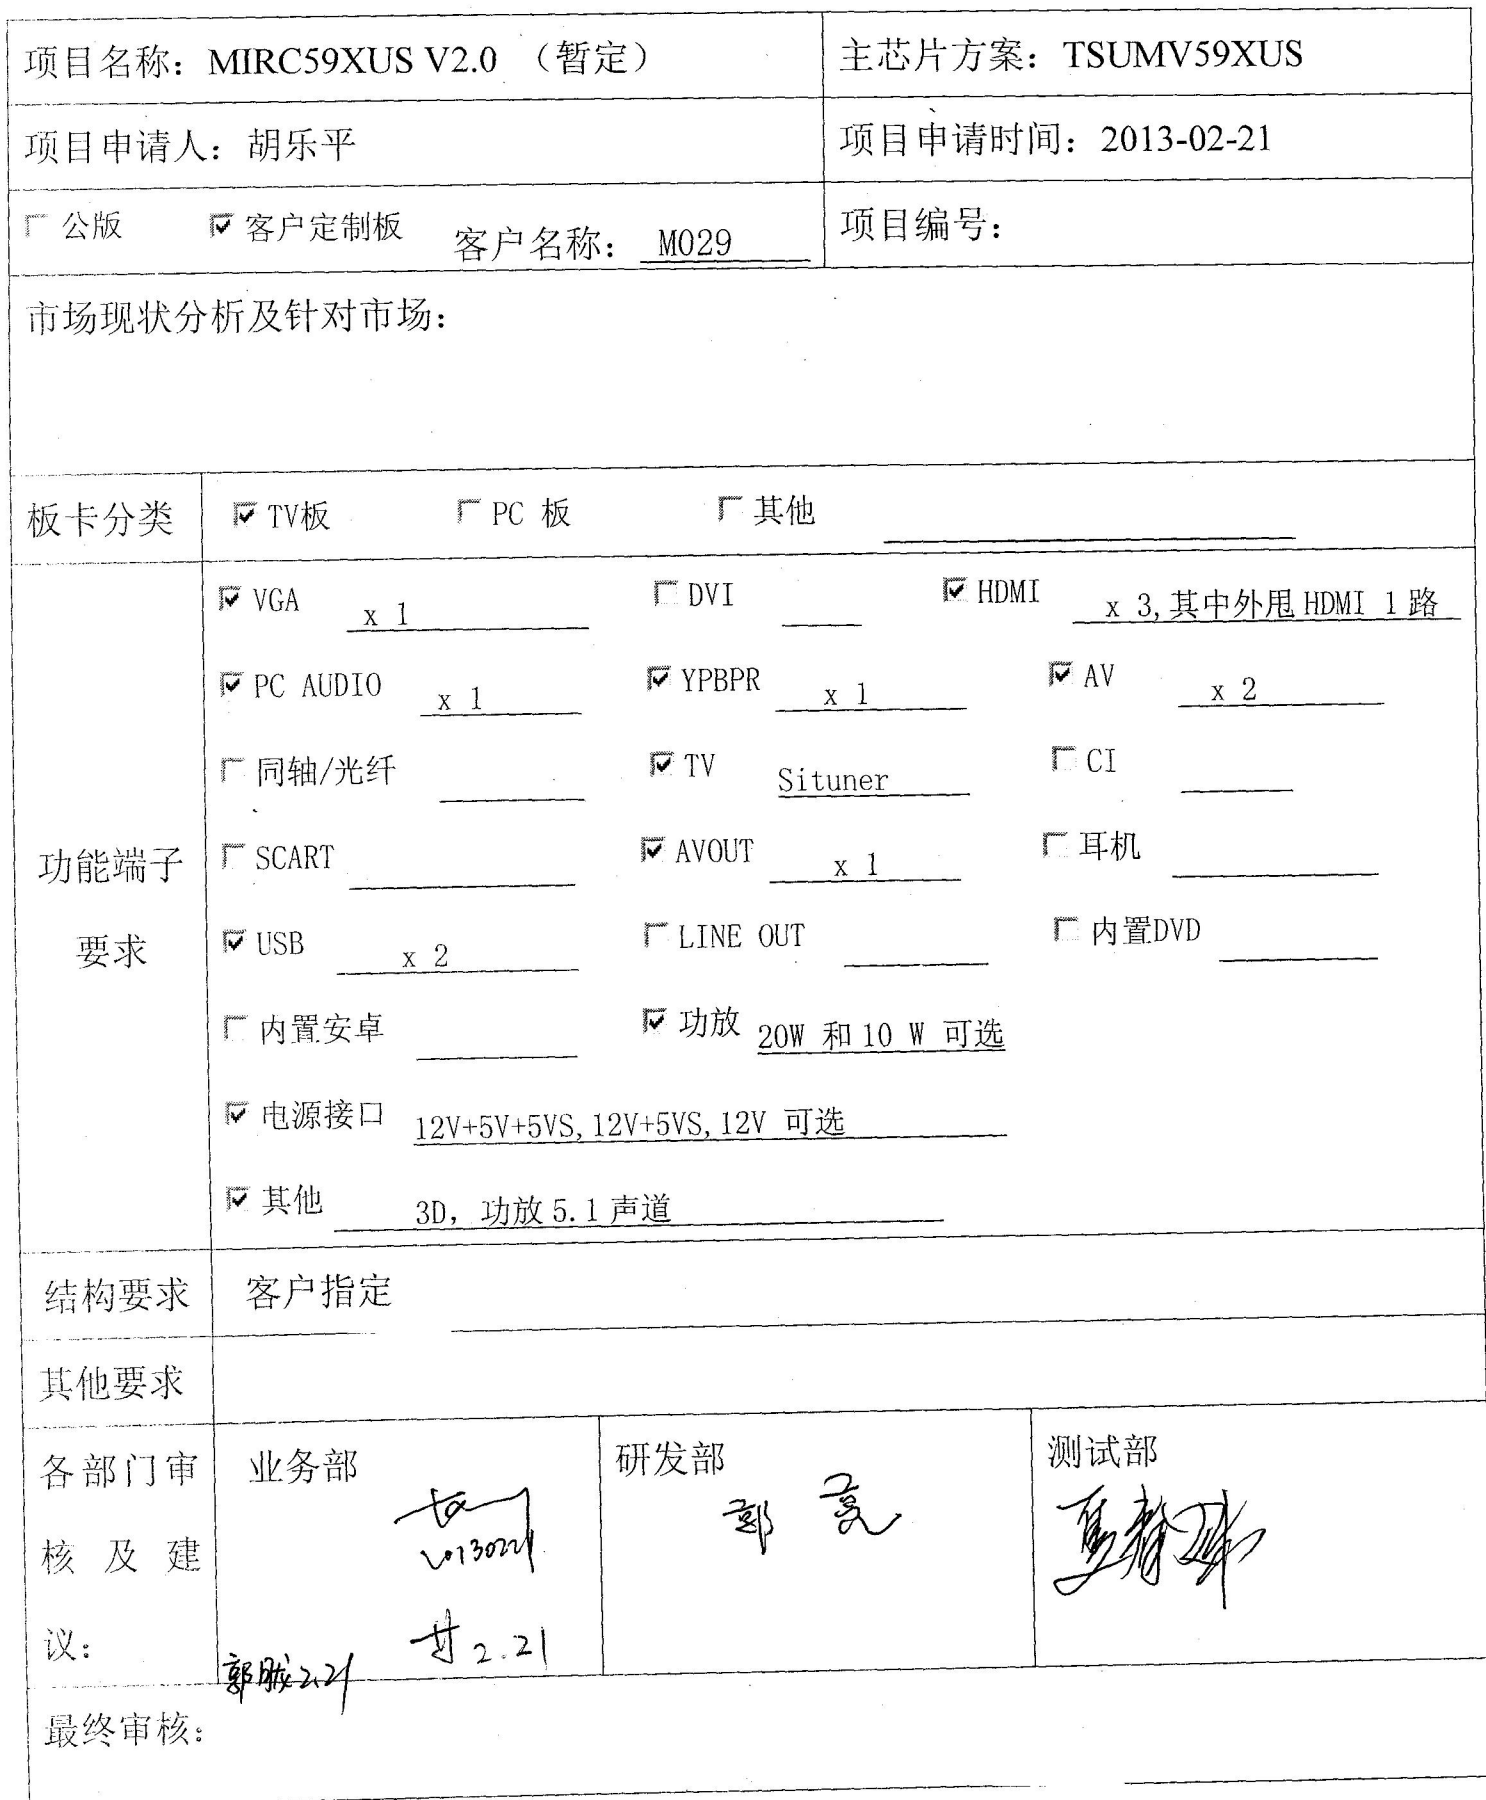 项目名称：MIRC59XUS V2.0 （暂定） 主芯片方案：TSUMV59XUS
项目申请人：胡乐平 项目申请时间：2013-02-21
公版 客户定制板 客户名称： M029 项目编号：
市场现状分析及针对市场：
板卡分类 TV板 PC 板 其他
VGA x 1 DVI HDMI x 3,其中外甩 HDMI 1 路
PC AUDIO x 1 YPBPR x 1 AV x 2
同轴/光纤 TV Situner CI
功能端子 SCART AVOUT x 1 耳机
要求 USB x 2 LINE OUT 内置DVD
内置安卓 功放 20W 和 10 W 可选
电源接口 12V+5V+5VS,12V+5VS,12V 可选
其他 3D，功放 5.1 声道
结构要求 客户指定
其他要求
各部门审 业务部 研发部 测试部
郭亮
20130221
核及建
议：
2.21
郭 2.21
最终审核：